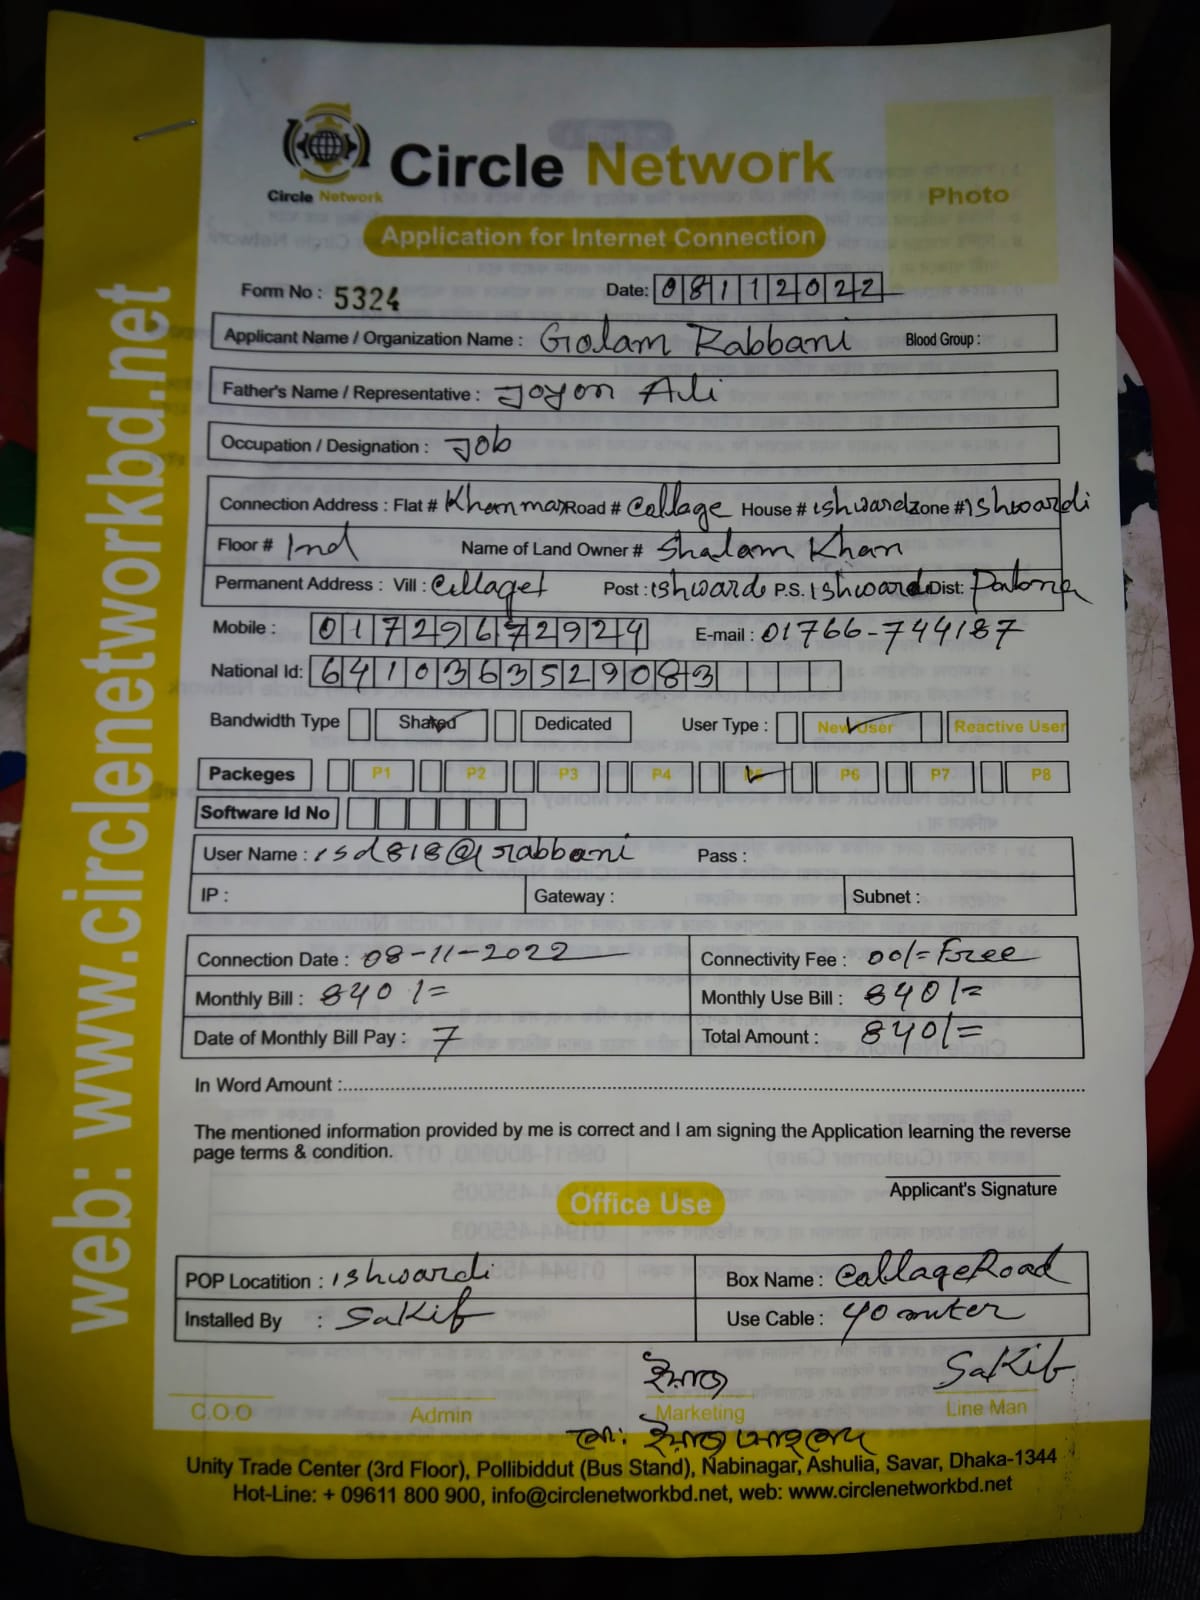 Circle Network
Circle Network
Photo
Application for Internet Connection
web: www.circlenetworkbd.net
Form No : 5324
Date: 08112022
Applicant Name / Organization Name : Golam Rabbani Blood Group :
Father's Name / Representative : Joyon Ali
Occupation / Designation : Job
Connection Address : Flat # Khanmax Road # Collage House # ishwardi Zone # Ishwardi
Floor # Ind Name of Land Owner # Shalam Khan
Permanent Address : Vill : Post : ishward P.S. Ishward Dist: Pabna
Mobile : 01729672924 E-mail : 01766-744187
National Id: 6410363529083
Bandwidth Type Shared Dedicated User Type : New User Reactive User
Packeges P1 P2 P3 P4 P5 P6 P7 P8
Software Id No
User Name : isd818@rabbani Pass :
IP : Gateway : Subnet :
Connection Date : 08-11-2022 Connectivity Fee : 00/= Free
Monthly Bill : 840/= Monthly Use Bill : 840/=
Date of Monthly Bill Pay : 7 Total Amount : 840/=
In Word Amount :
The mentioned information provided by me is correct and I am signing the Application learning the reverse
page terms & condition.
Applicant's Signature
Office Use
POP Locatition : Ishwardi Box Name : Collage Road
Installed By : Sakib Use Cable : 40 muter
Sakib
C.O.O Admin Marketing Line Man
Unity Trade Center (3rd Floor), Pollibiddut (Bus Stand), Nabinagar, Ashulia, Savar, Dhaka-1344
Hot-Line: + 09611 800 900, info@circlenetworkbd.net, web: www.circlenetworkbd.net